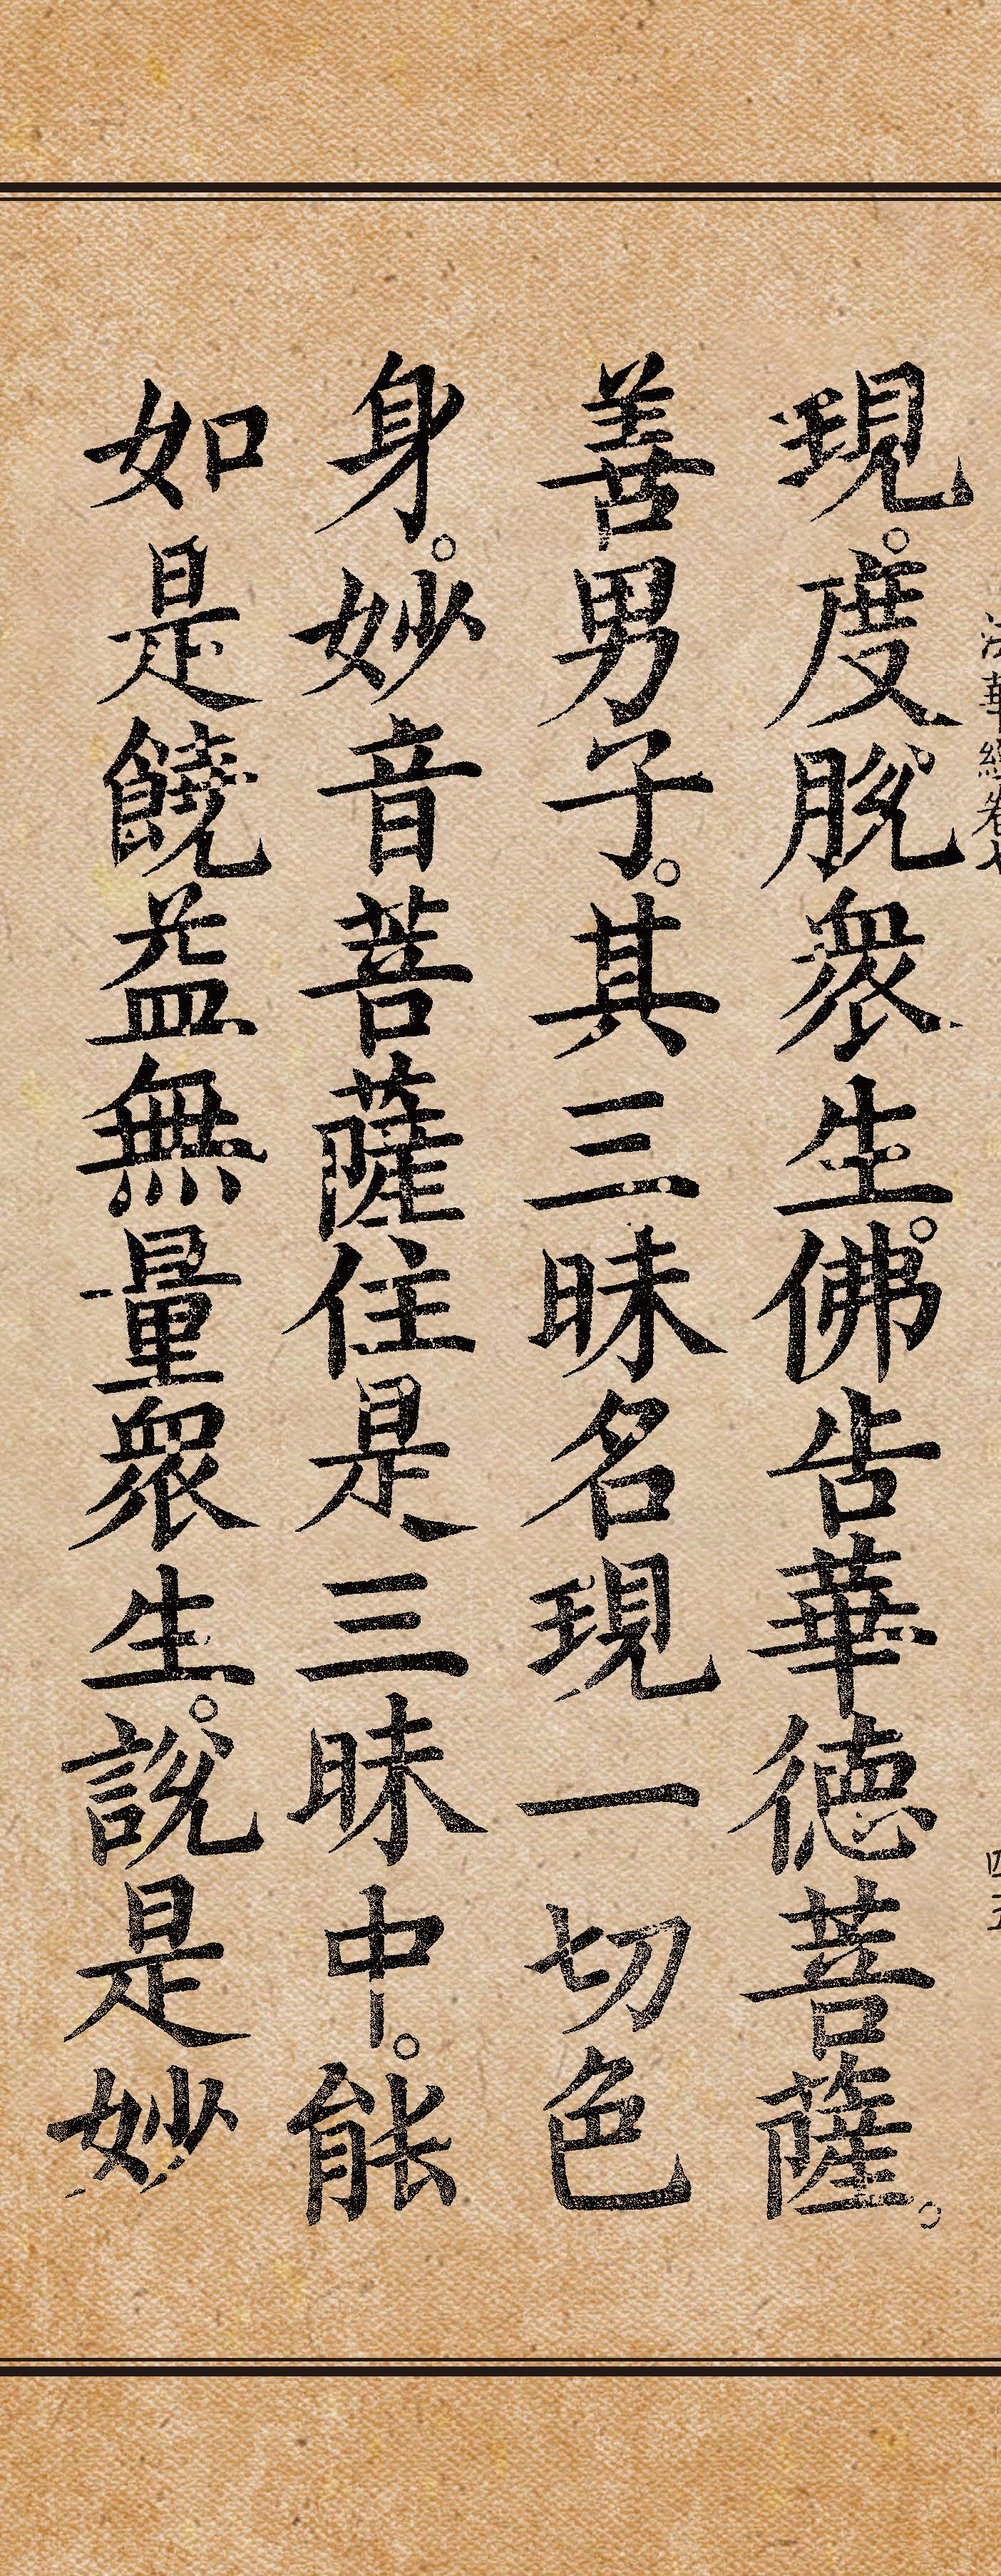 法華經卷七
四五
現。度脫衆生。佛告華德菩薩。
善男子。其三昧名現一切色
身。妙音菩薩住是三昧中。能
如是饒益無量衆生。說是妙